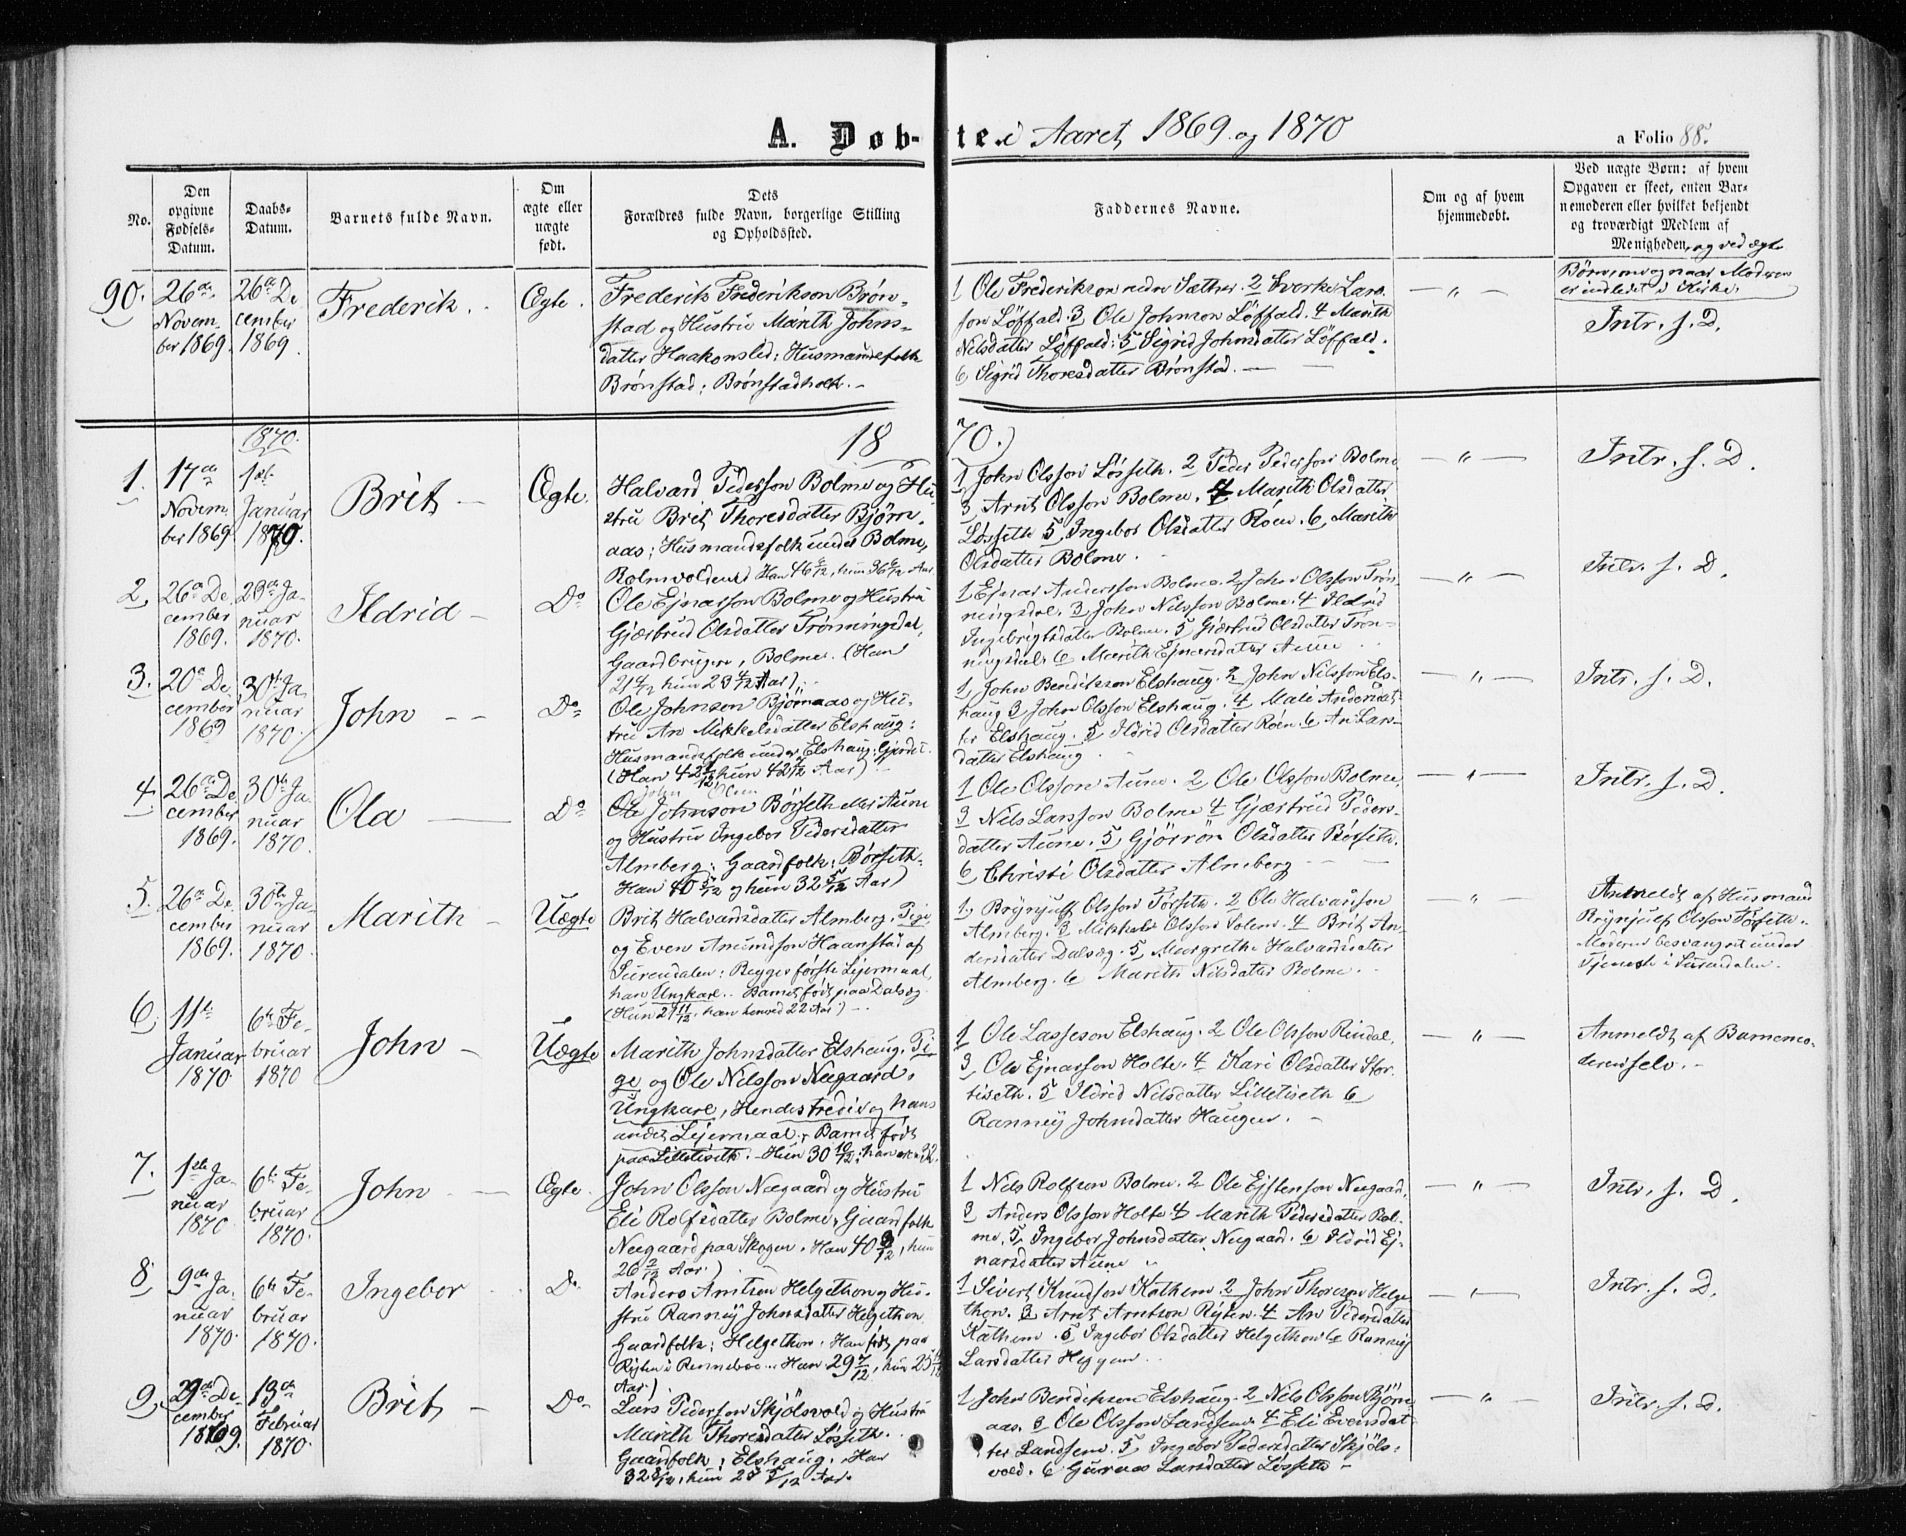 A. Døb-te i Aaret 1869 og 1870
a Folio 88.
No.
Den opgivne Fødsels-Datum.
Daabs-Datum.
Barnets fulde Navn.
Om ægte eller uægte født.
Dets Forældres fulde Navn, borgerlige Stilling og Opholdssted.
Faddernes Navne.
Om og af hvem hjemmedøbt.
Ved uægte Børn: af hvem
Opgaven er skeet, enten Bar-
nemoderen eller hvilket bekjendt
og troværdigt Medlem af
Menigheden, og ved ægte
Børn, om og naar Moderen
er indledet i Kirke.
90.
26de
Novem-
ber 1869.
26de De
cember
1869.
Frederik.
Ægte.
Frederik Frederikson Brøn-
stad og Hustru Marith Johns-
datter Haakonslid: Husmandsfolk
Brønstad: Brønstadholt. -
1 Ole Frederikson nedre Sæther. 2 Sverke Lars-
son Løffald. 3 Ole Johnson Løffald. 4 Marith
Nilsdatter Løffald: 5 Sigrid Johnsdatter Løffald.
6 Sigrid Thoresdatter Brønstad. -
— " —
Intr. s. D.
1870.
18
70.)
1.
17de
Novem-
ber 1869
1ste
Januar
1870.
Brit -
Ægte.
Halvard Pederson Bolme og Hu-
stru Brit Thoresdatter Bjørn-
aas: Husmandsfolk under Bolme,
Bolmvolden. Han 46 , hun 36 Aar
1 John Olsson Løsseth. 2 Peder Pederson Bolme
3 Arnt Olsson Bolme. 4 Marith Olsdatter
Løsseth 5 Ingebor Olsdatter Røen. 6 Marith
Olsdatter Bolme.
— " —
Intr. s. D.
2,
26de De
cember
1869.
29de Ja-
nuar
1870.
Ildrid -
Do
Ole Ejnarsson Bolme og Hustru
Gjærtrud Olsdatter Trønningsdal,
Gaardbruger, Bolme. (Han
21 4/12 hun 23 4/12 Aar).
1 Ejnar Anderson Bolme. 2 John Olsson Trøn-
ningsdal. 3 John Nilsson Bolme. 4 Ildrid
Ingebrigtsdatter Bolme. 5 Gjærtrud Olsdatter Trøn-
ningsdal. 6 Marith Ejnarsdatter Aune
— " —
Intr. s. D.
3.
20de De
cember
1869
30te Ja-
nuar
1870.
John - -
Do
Ole Johnson Bjørnaas og Hu-
stru An Mikkelsdatter Elshaug:
Husmandsfolk under Elshaug: Gjerdet.
(Han 42 hun 42 Aar)
1 John Bendikson Elshaug. 2 John Nilsson Els-
haug 3 John Olsson Elshaug. 4 Mali Andersdat-
ter Elshaug. 5 Ildrid Olsdatter Røen 6 An Lars-
datter Elshaug
— " —
Intr. s. D.
4.
26de De
cember
1869.
30te Ja-
nuar
1870.
Ola
Do
Ole Johnson Børseth Aune
og Hustru Ingebor Pedersdatter
Almberg: Gaardfolk: Børseth.
Han 40 5/12 og hun 32 5/12 Aar)
1 Ole Olsson Aune. 2 Ole Olsson Bolme,
3 Nils Larsson Bolme 4 Gjærtrud Peders-
datter Aune. 5 Gjørrøn Olsdatter Børseth.
6 Christi Olsdatter Almberg
— " —
Intr. s. D.
5.
26de De
cember
1869.
30te Ja-
nuar
1870.
Marith -
Uægte
Brit Halvarsdatter Almberg, Pige
og Even Amundson Haanstad af
Surendalen: Begges første Lejermaal,
han Ungkarl. Barnet født paa Dalsæg.
(Hun 21 11/12, han henved 22 Aar)
1, Brynjulf Olsson Tørseth. 2 Ole Halvarsson
Almberg. 3 Mikkel Olsson Solem. 4 Brit An-
dersdatter Dalsæg. 5 Margrethe Halvardsdatter
Almberg. 6 Marith Nilsdatter Bolme.
— " —
Anmeldt af Husmand
Brynjulf Olsson Tørseth.
Moderen besvangret under
Tjeneste i Surendalen.
6,
11te
Januar
1870.
6te Fe-
bruar
1870
John -
Uægte
Marith Johnsdatter Elshaug. Pi-
ge og Ole Nilsson Nægaard,
Ungkarl, Hendes tredie og hans
andet Lejermaal. Barnet født
paa Littletiseth. Hun 30 10/12, han 32.
1 Ole Lasseson Elshaug. 2 Ole Olsson Rindal,
3, Ole Ejnarsson Holte. 4 Kari Olsdatter Stor-
tiseth. 5 Ildrid Nilsdatter Littletiseth 6
Ranney Johnsdatter Haugen. -
— " —
Anmeldt af Barnemo-
deren selv. -
7.
1ste Ja-
nuar
1870
6te Fe-
bruar
1870.
John -
Ægte.
John Olsson Nægaard og Hustru
Eli Rolfsdatter Bolme, Gaardfolk
Nægaard paa Skogen. Han 40 , hun
26 Aar)
1 Nils Rolfson Bolme. 2 Ole Ejstenson Nægaard,
3 Anders Olsson Holte 4 Marith Pedersdatter Bol-
me. 5, Ingebor Johnsdatter Nægaard. 6 Ildrid Ej-
narsdatter Aune
— " —
Intr. s. D.
8,
9de Ja-
nuar
1870.
6te Fe-
bruar
1870.
Ingebor
Do
Anders Arntsen Helgethon og Hu-
stru Ranney Johnsdatter Helgethon
Gaardfolk; Helgethon. Han født paa
Ryten i Rennebo. Han 29 , hun 25
Aar)
1 Sivert Knudson Kathem. 2 John Thoreson Helge-
thon. 3 Arnt Arntson Ryten. 4 An Pedersdatter
Kathem. 5 Ingebor Olsdatter Helgethon 6 Ranney
Larsdatter Heggem
Intr. s. D.
9,
29de De
cember
1869.
13de
Februar
1870.
Brit -
Do
Lars Pederson Skjølsvold og Hustru
Marith Thoresdatter Løsseth.
Gaardfolk, Elshaug. Han
32 , hun 25 Aar.
1 John Bendikson Elshaug. 2 Nils Olsson Bjørn-
aas. 3 Ole Olsson Landsem. 4 Eli Evensdat-
ter Landsem. 5 Ingebor Pedersdatter Skjøls-
vold. 6 Larsdatter Løsseth -
— " —
Intr. s. D.